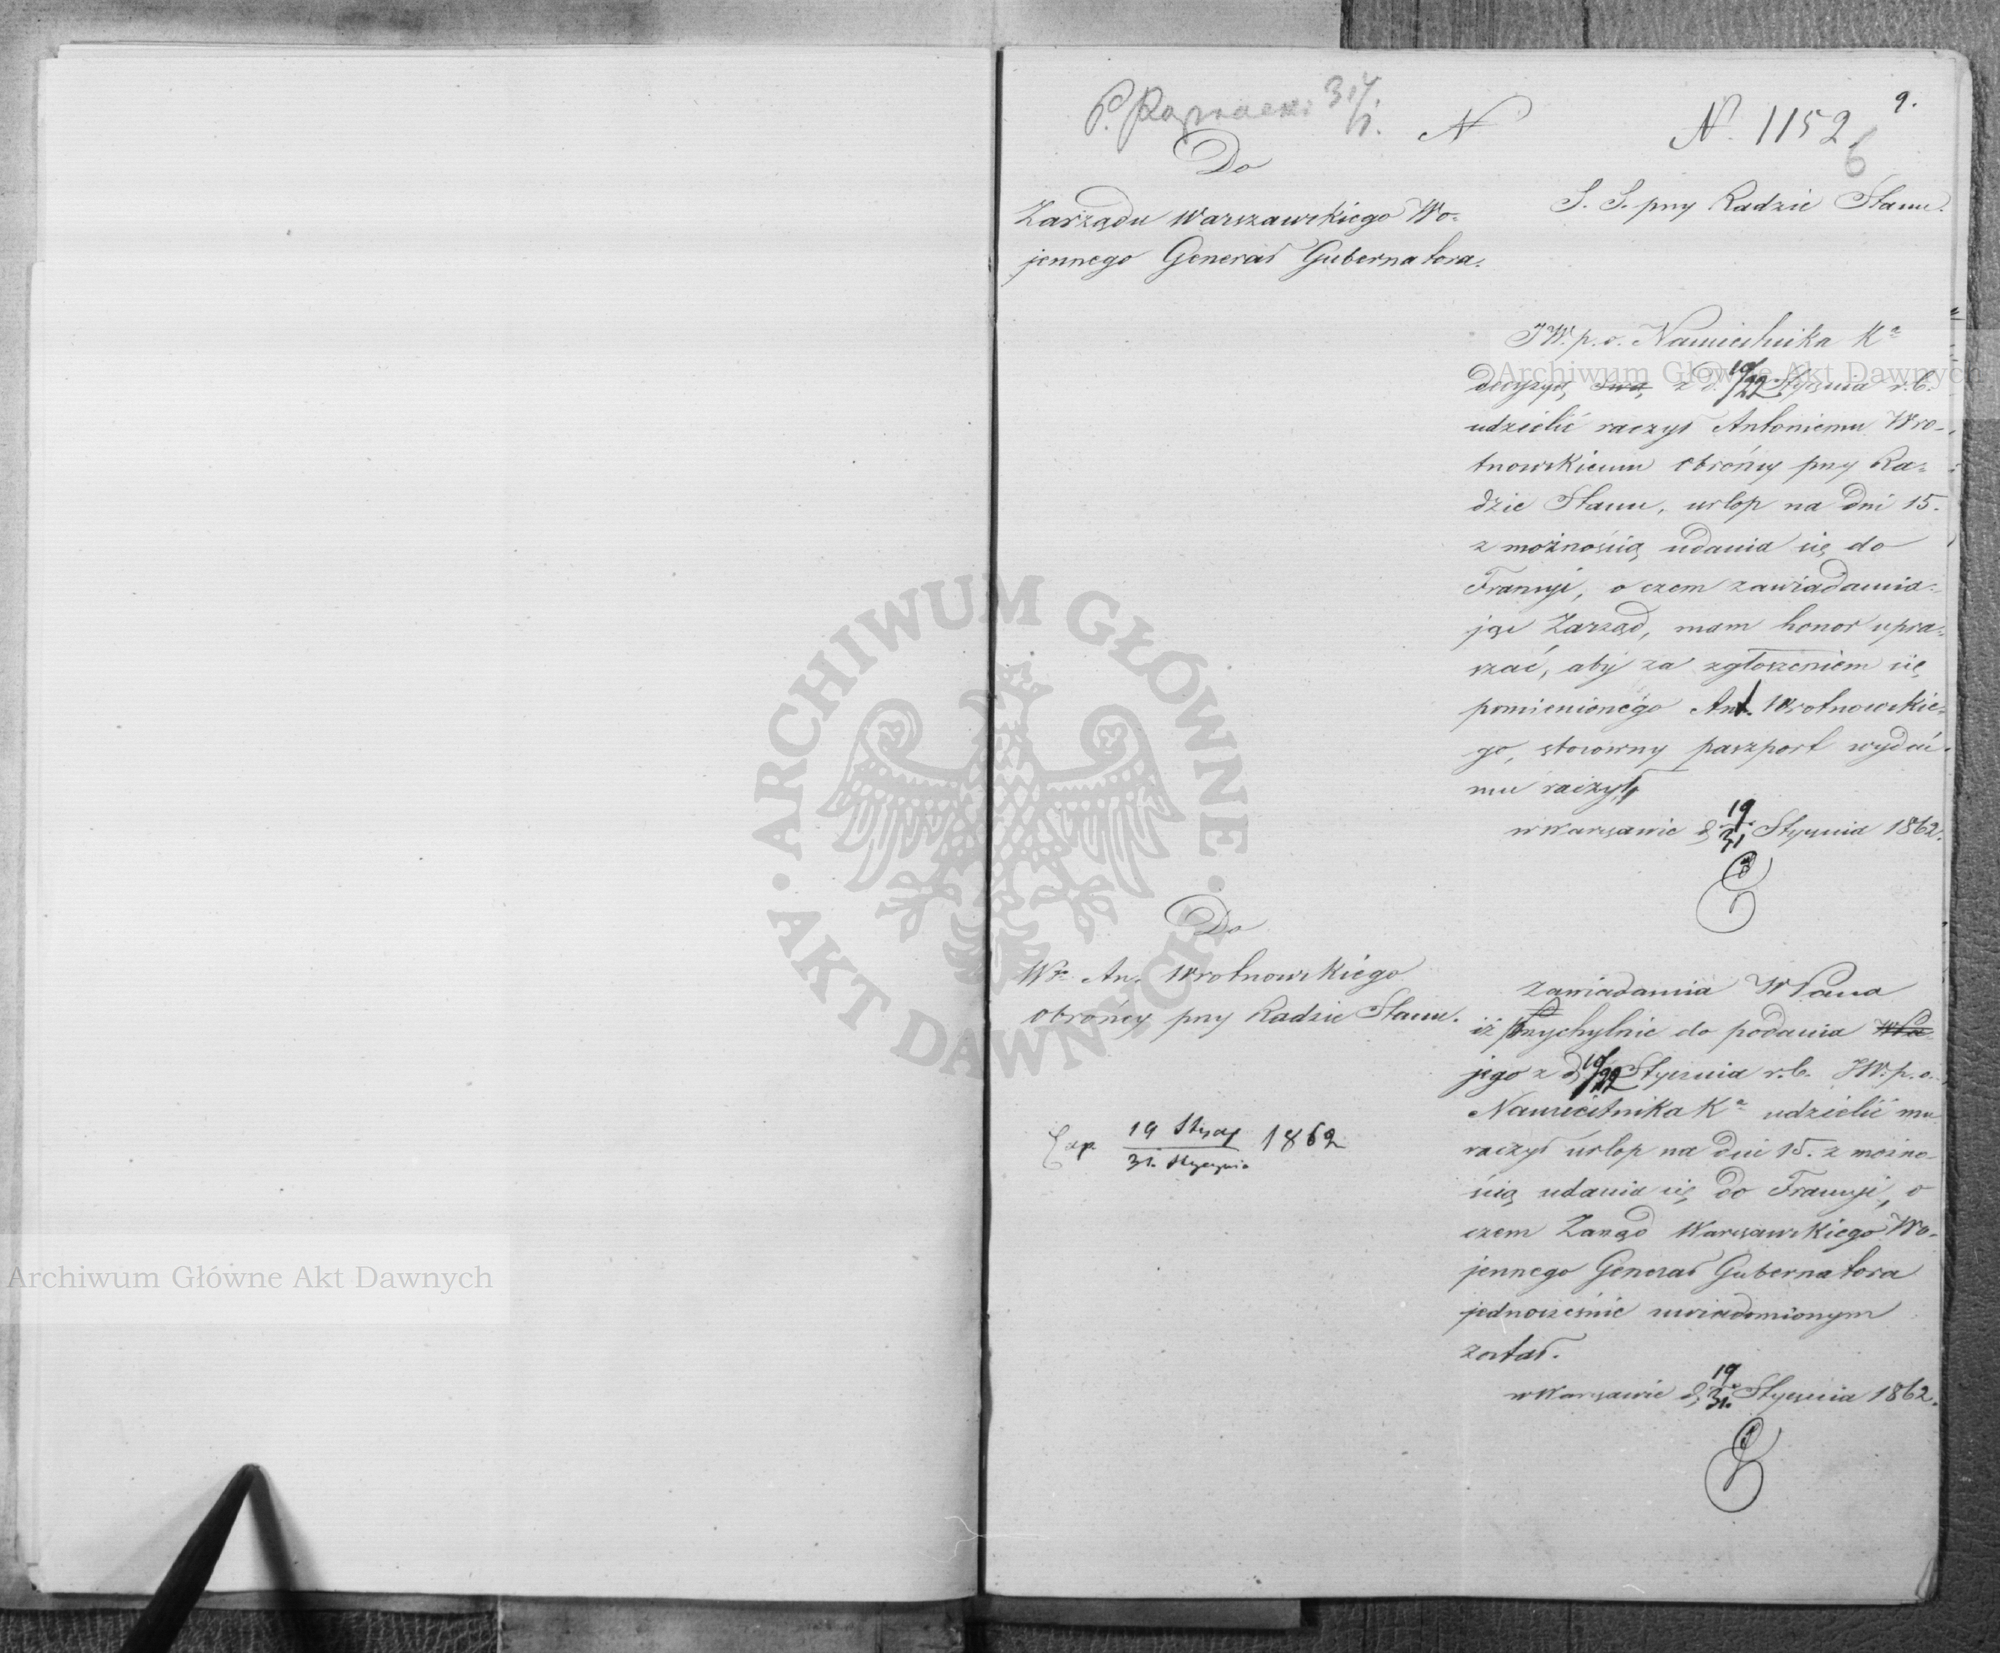 31/1.
N
N. 1152
9.
6
Do
Zarządu Warszawskiego Wo-
jennego Generał Gubernatora.
S. S. przy Radzie Stanu.
JW. p. o. Namiestnika Kr
decyzyą swą z d. 10/22 Stycznia r.b.
udzielić raczył Antoniemu Wro-
tnowskiemu Obrońcy przy Ra-
dzie Stanu, urlop na dni 15.
z możnością udania się do
Francyi, o czem zawiadamia-
jąc Zarząd, mam honor upra-
szać, aby za zgłoszeniem się
pomienionego Ant. Wrotnowskie-
go, stosowny paszport wydać
mu raczył,
w Warszawie d. 19/31 Stycznia 1862.
Do
Wo An. Wrotnowskiego
Obrońcy przy Radzie Stanu.
Zawiadamia WPana
iż przychylnie do podania WPa
jego z d. 10/22 Stycznia r.b. JW. p. o.
Namiestnika Kr udzielić mu
raczył urlop na dni 15. z możno-
ścią udania się do Francyi, o
czem Zarząd Warszawskiego Wo-
jennego Generał Gubernatora
jednocześnie uwiadomionym
został.
w Warszawie d. 19/31. Stycznia 1862.
Exp. 19 Stycz/31. Stycznia 1862
Archiwum Główne Akt Dawnych
Archiwum Główne Akt Dawnych
ARCHIWUM GŁÓWNE AKT DAWNYCH